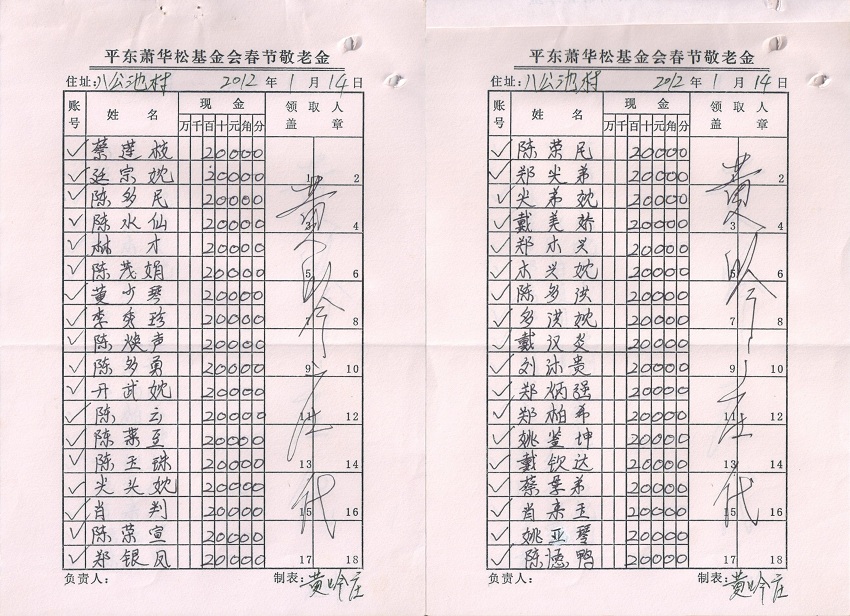 平东萧华松基金会春节敬老金
住址:八公池村 2012年1月14日
账号 姓名 现金 领取人盖章
万千百十元角分
蔡莲枝 20000
宗妩 20000
陈多民 20000
陈水仙 20000
林才 20000
陈茂娟 20000
黄少琴 20000
李秀珍 20000
陈焕声 20000
陈多勇 20000
丹武妩 20000
陈云 20000
陈菜豆 20000
陈玉珠 20000
尖头妩 20000
肖判 20000
陈荣宣 20000
郑银凤 20000
1 2
3 4
5 6
7 8
9 10
11 12
13 14
15 16
17 18
代
负责人: 制表:黄吟庄
平东萧华松基金会春节敬老金
住址:八公池村 2012年1月14日
账号 姓名 现金 领取人盖章
万千百十元角分
陈荣民 20000
郑尖弟 20000
尖弟妩 20000
戴美娇 20000
郑木兴 20000
木兴妩 20000
陈多洪 20000
多洪妩 20000
戴汉炎 20000
刘沐贵 20000
郑炳强 20000
郑柏弟 20000
姚鉴坤 20000
戴钦达 20000
蔡弟 20000
肖来玉 20000
姚亚琴 20000
陈德鸭 20000
2
3 4
5 6
7 8
9 10
11 12
13 14
15 16
17 18
代
负责人: 制表:黄吟庄